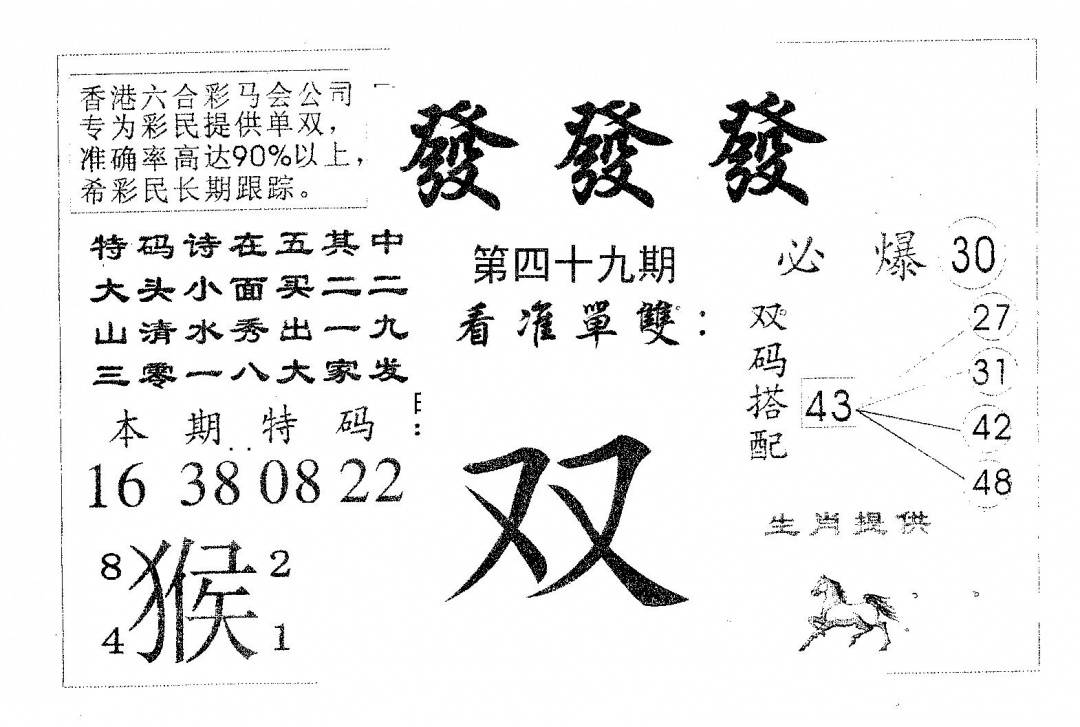 香港六合彩马会公司
专为彩民提供单双，
准确率高达90%以上，
希彩民长期跟踪。
發發發
特码诗在五其中
大头小面买二二
山清水秀出一九
三零一八大家发
第四十九期
看准單雙：
双
必爆 30
双码搭配
43
27
31
42
48
本期特码：
16 38 08 22
8 2
猴
4 1
生肖提供